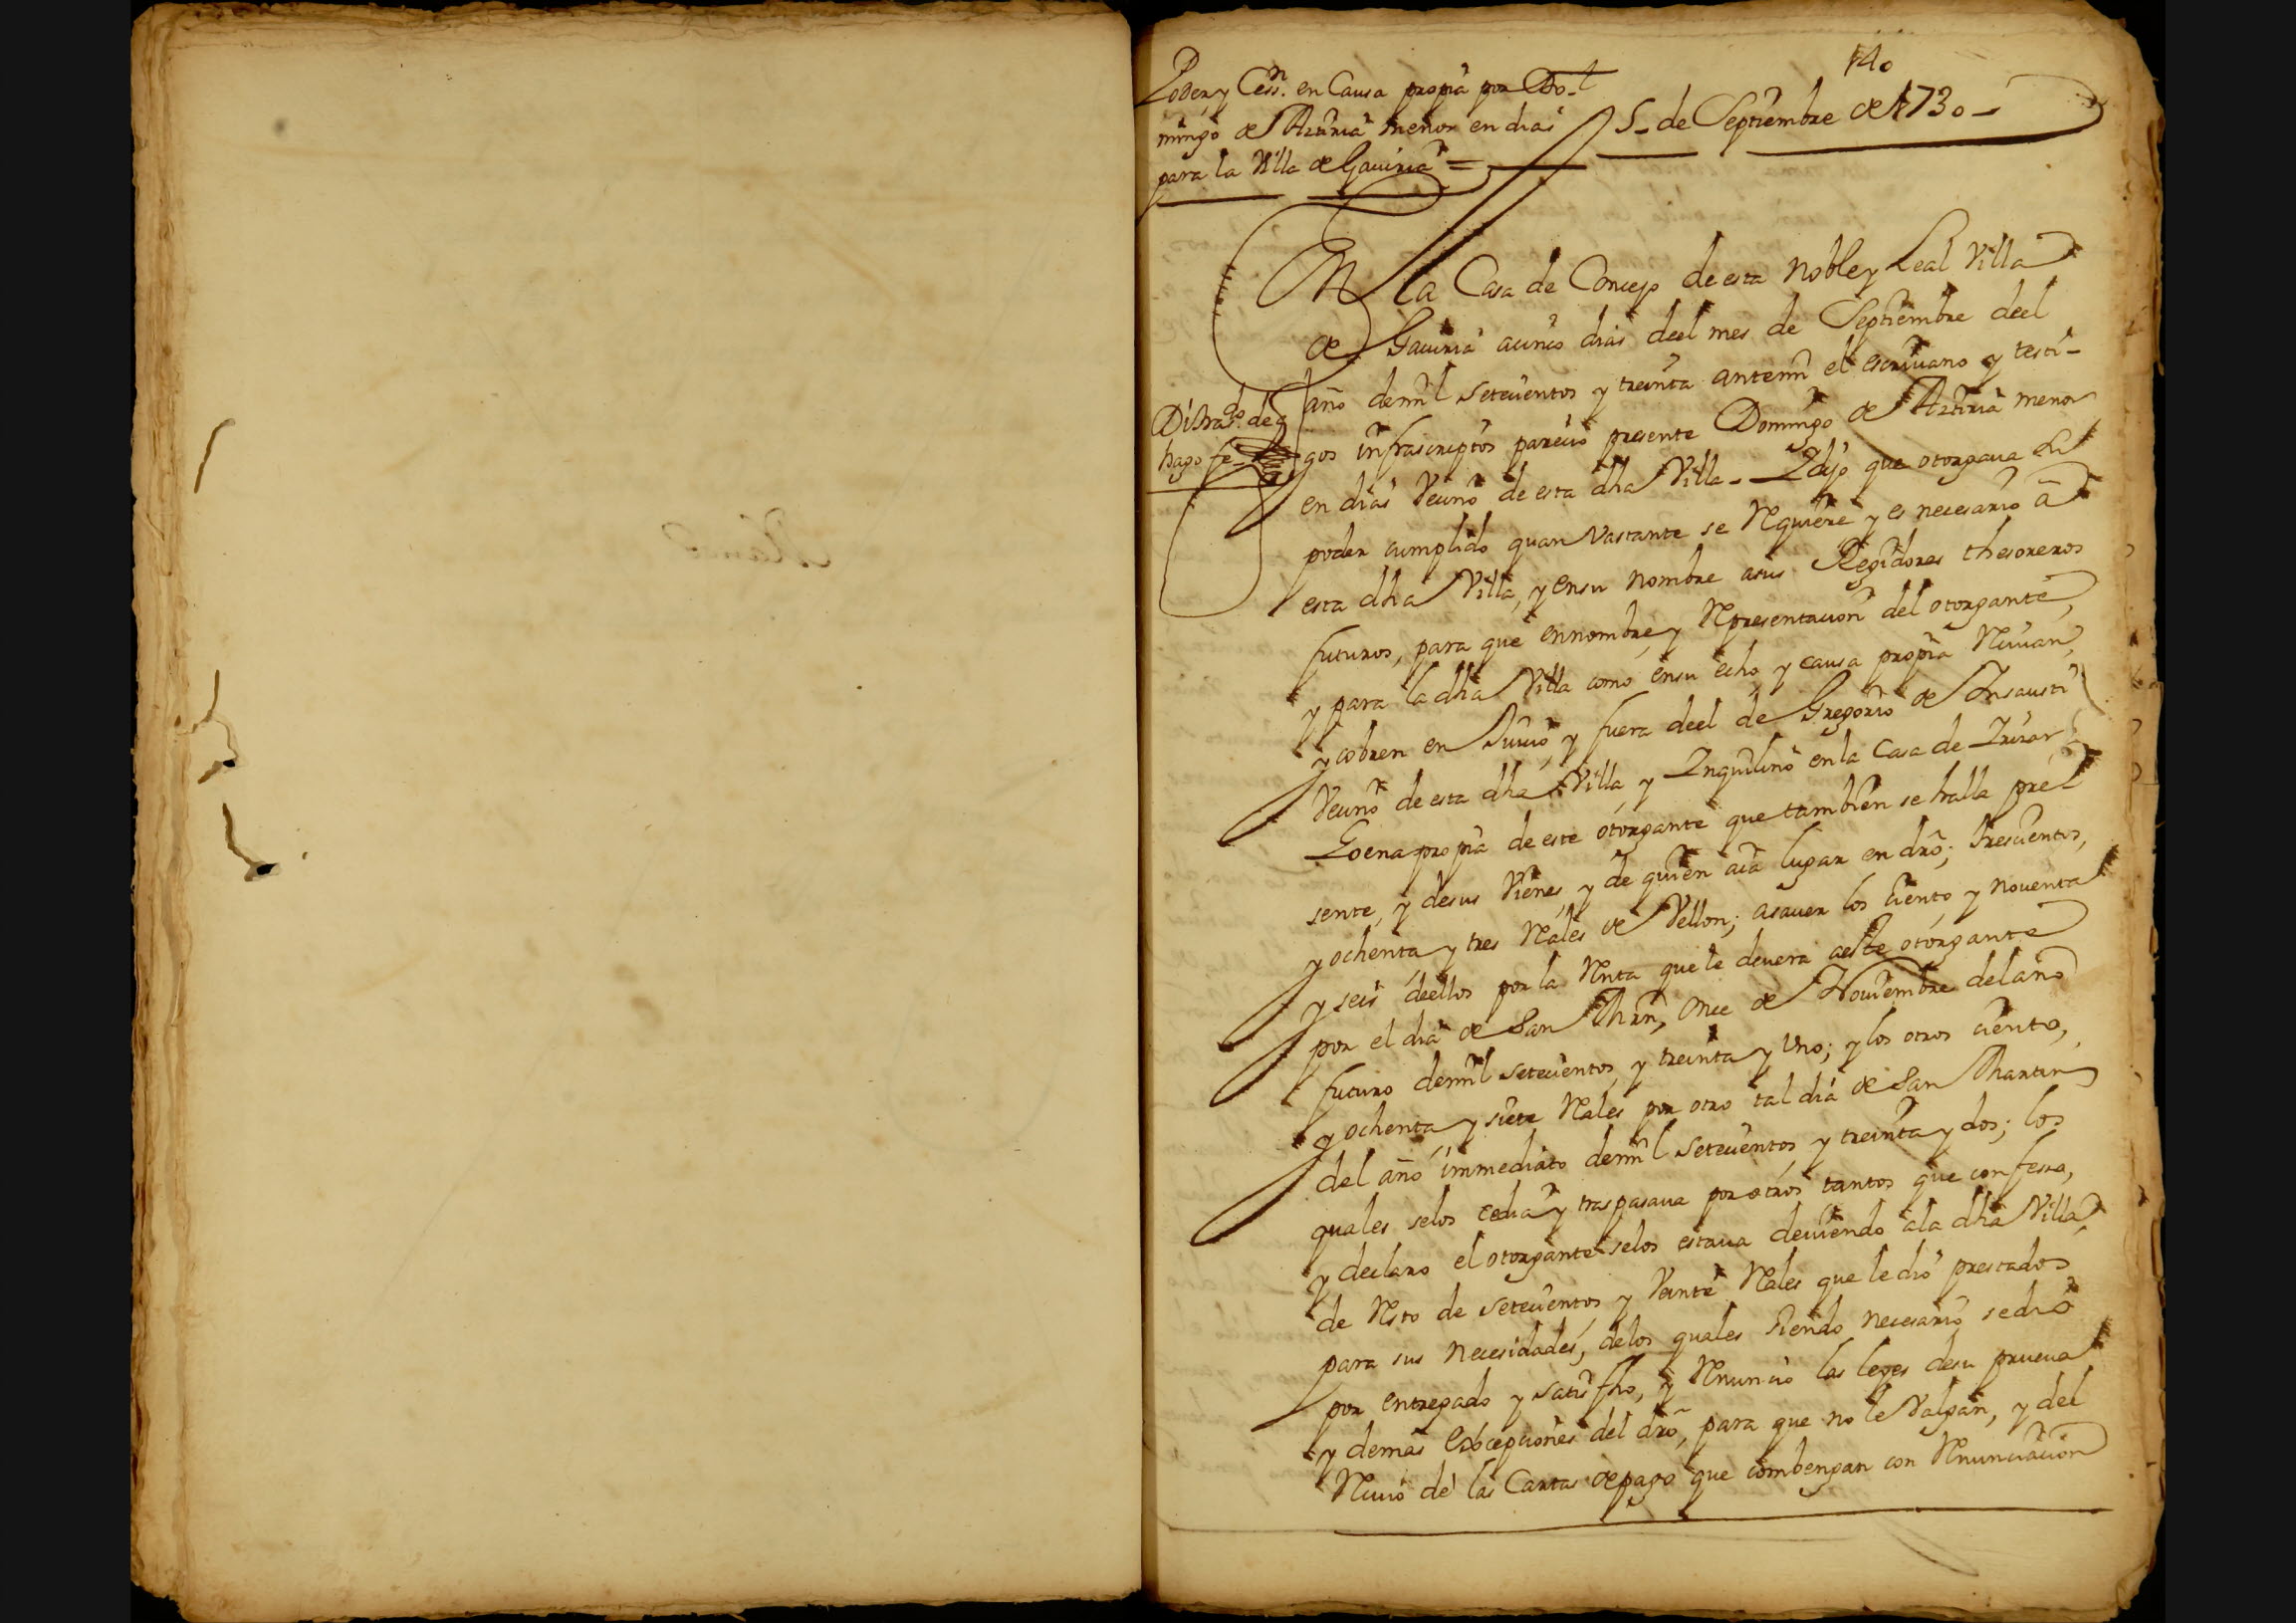 140
Poder, y Cess.n en Causa propia por Do-
mingo de Azuria menor en dias
para la Villa de Gauiria =
5 - de Septiembre de 1730 -
EN la Casa de Concejo de esta Noble y Leal Villa
de Gauiria a cinco dias deel mes de Septiembre deel
año de mil setecientos y treinta ante mi el escriuano y testi-
gos infrascriptos parecio presente Domingo de Azuria menor
en dias Vecino de esta dha Villa - Y dijo que otorgaua su
poder cumplido quan Vastante se Requiere y es necesario â
esta dha Villa, y en su nombre a sus Regidores thesoreros
futuros, para que en nombre, y Representacion del otorgante,
y para la dha Villa como en su echo, y causa propia Reciuan,
y cobren en Juicio, y fuera deel de Gregorio de Insausti
Vecino de esta dha Villa y Inquilino en la Casa de Irizar
Goena propia de este otorgante que tambien se halla pre-
sente, y de sus Vienes, y de quien aia lugar en dro; trescientos,
y ochenta y tres Rales de Vellon; a sauer los ciento y nouenta
y seis deellos por la Renta que le deuera a este otorgante
por el dia de San Mrn, Once de Nouiembre del año
futuro de mil setecientos, y treinta y Uno; y los otros ciento,
y ochenta, y siete Rales por otro tal dia de San Martin
del año immediato de mil setecientos y treinta y dos; los
quales se los cedia y traspasaua por otros tantos que confesso,
y declaro el otorgante se los estaua deuiendo a la dha Villa,
de Resto de setecientos, y Veinte Rales que le dio prestados
para sus necesidades, de los quales siendo necesario se dio
por entregado y satisfho, y Renuncio las leyes de su prueua
y demas Excepciones del dro, para que no le Valgan, y del
Reciuo de las Cartas de pago que combengan con Renunciacion
Di tras.do de q
hago fe -